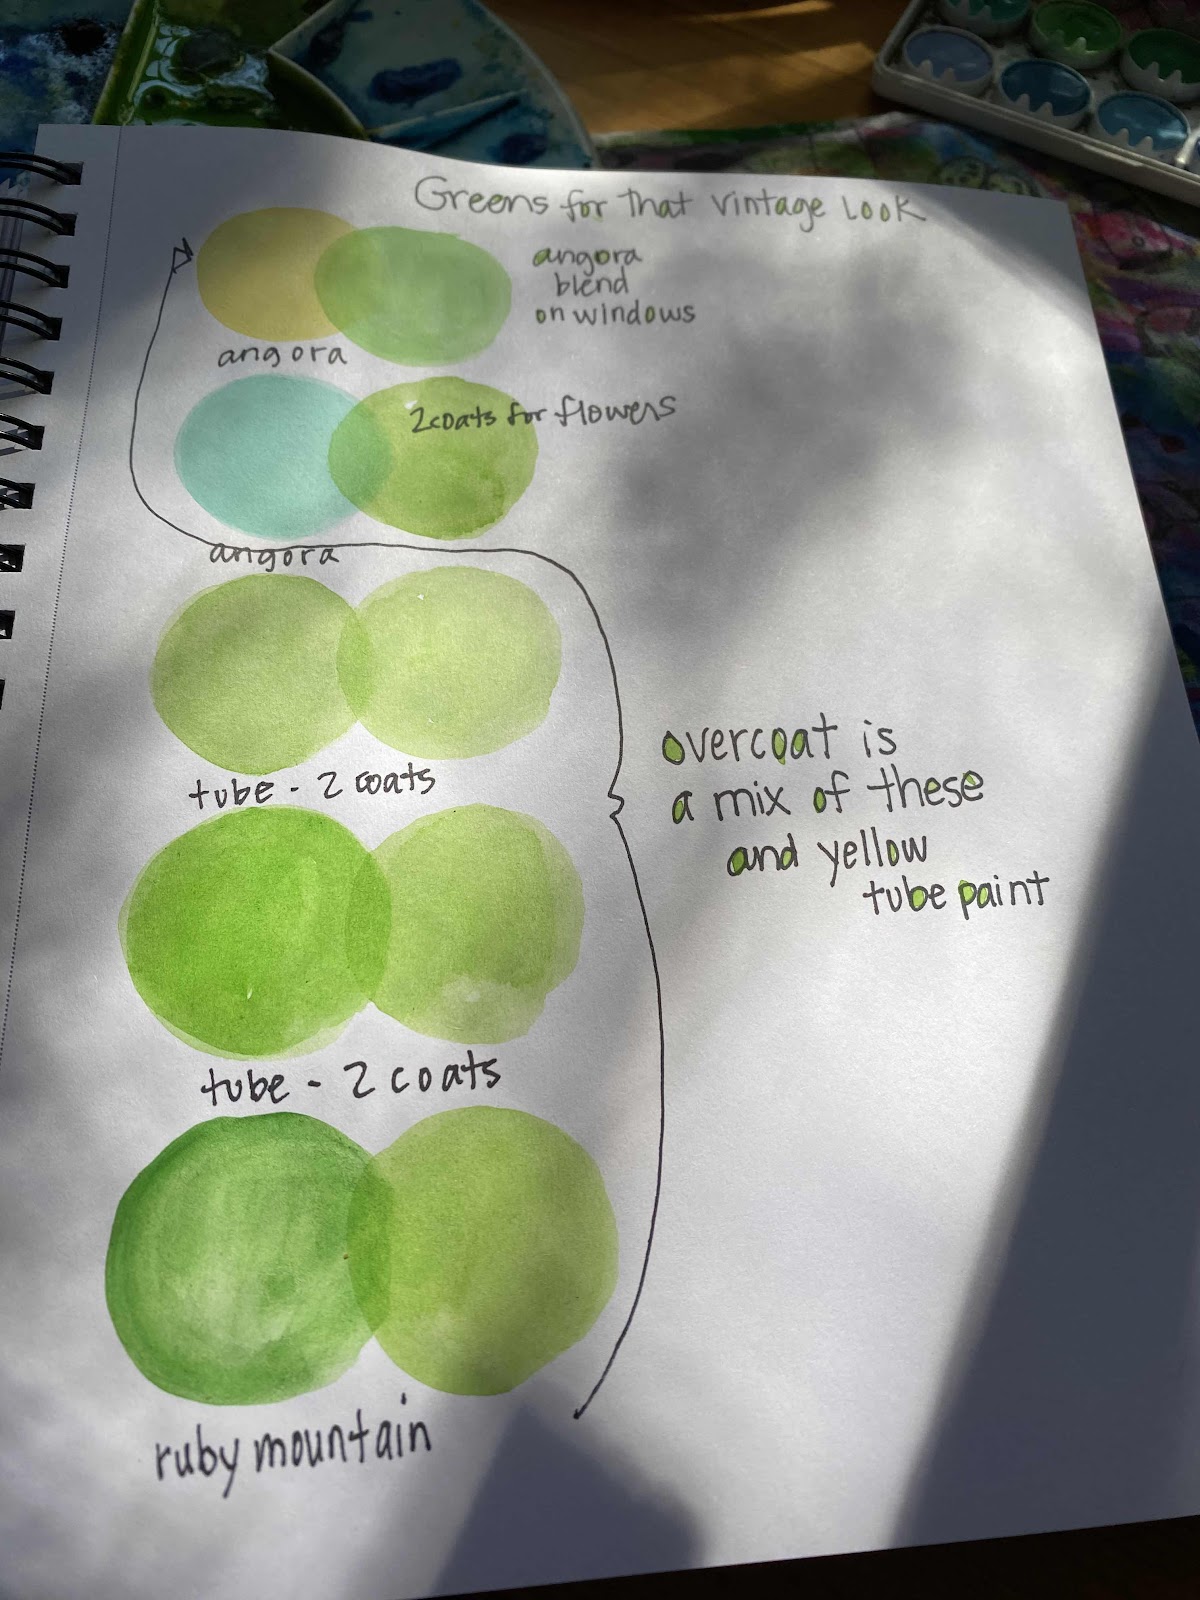 Greens for that vintage look
angora
blend
on windows
angora
2 coats for flowers
angora
tube - 2 coats
overcoat is
a mix of these
and yellow
tube paint
tube - 2 coats
ruby mountain